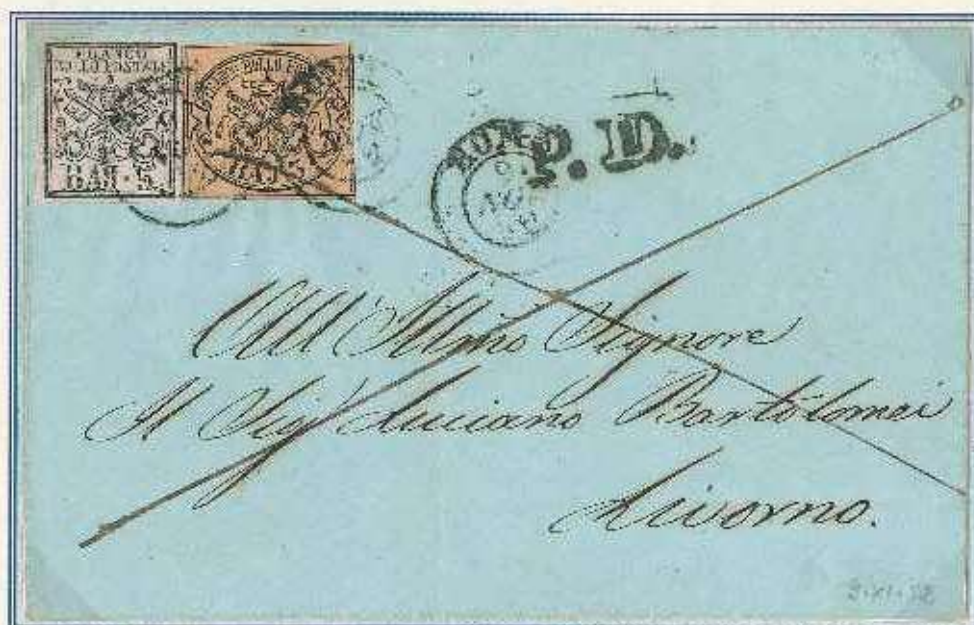 FRANCO
BOLLO POSTALE
BAJ. 5.
BOLLO
BAJ. 3
ROMA
P. D.
All' Illmo Signore
Il Sigr Luciano Bartolomei
Livorno.